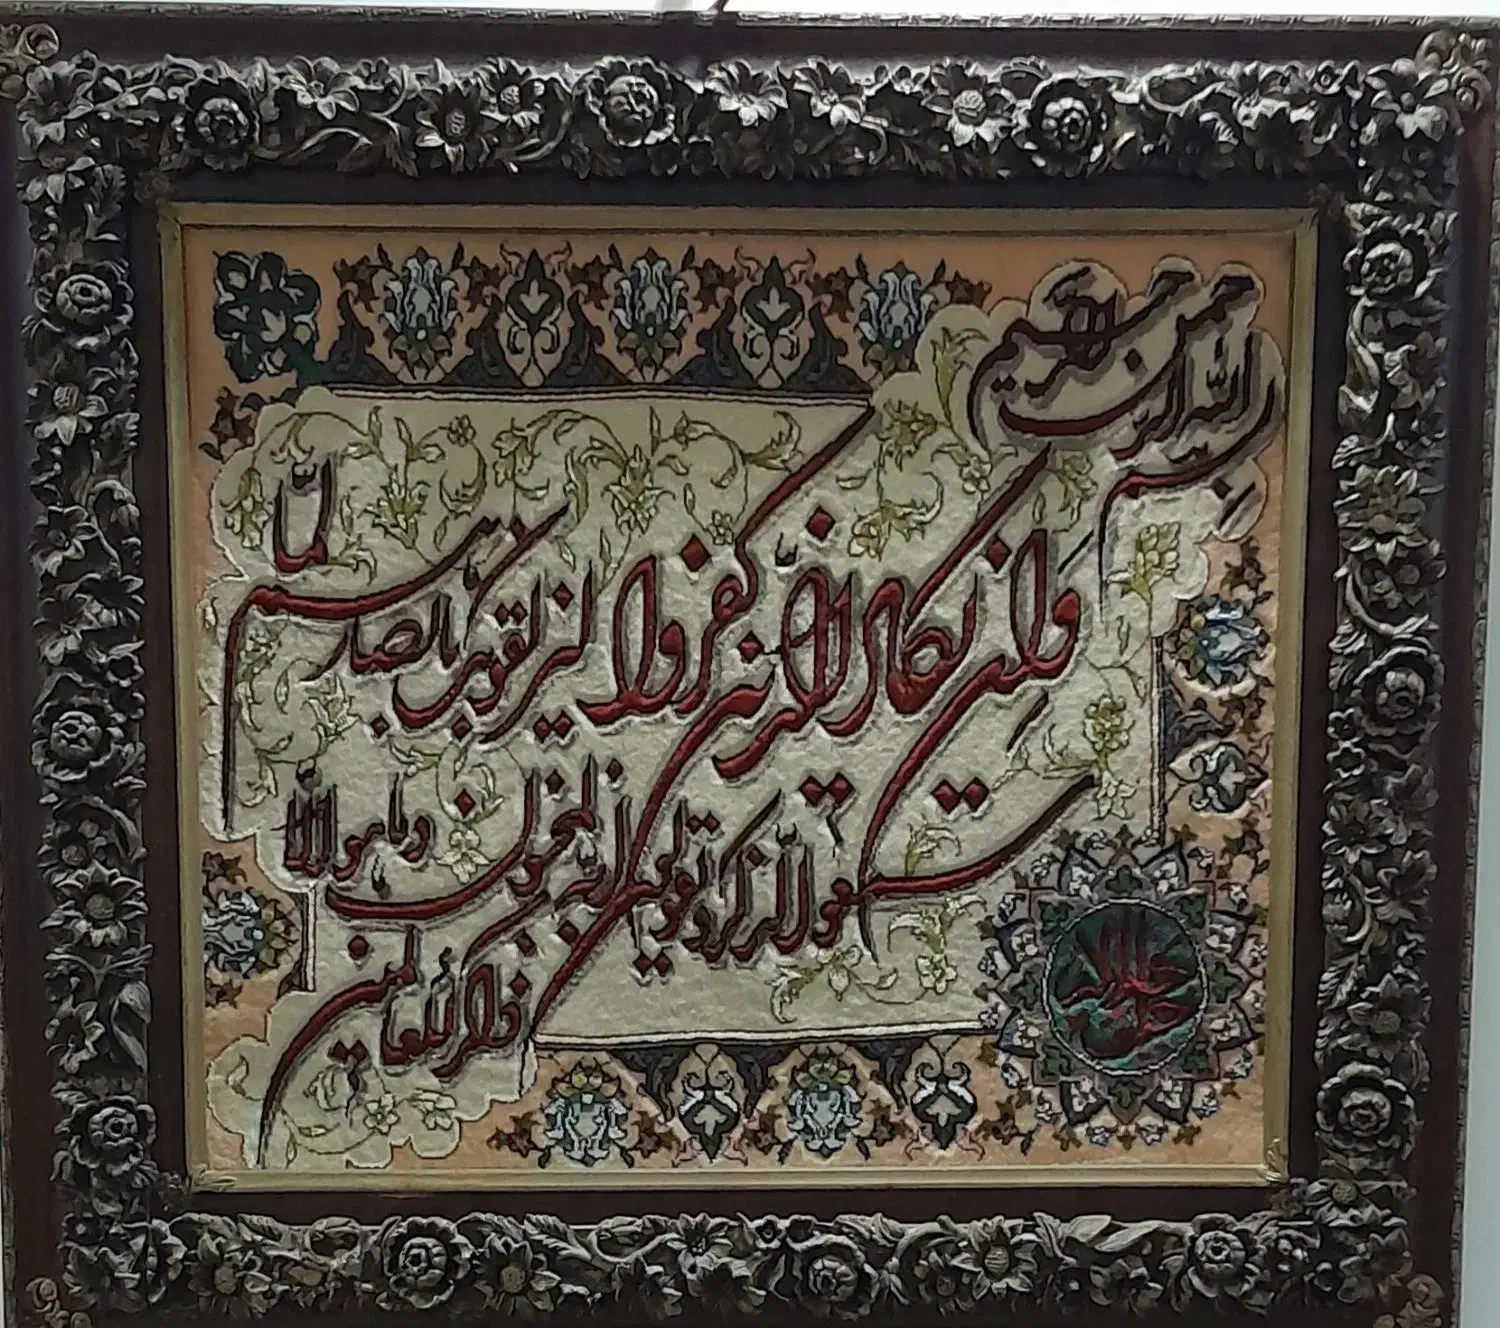 بسم الله الرحمن الرحيم
وَاِن يكاد الذين كفروا ليزلقونك بابصارهم لمّا
سمعوا الذكر و يقولون انه لمجنون و ما هو الا
ذكر للعالمين